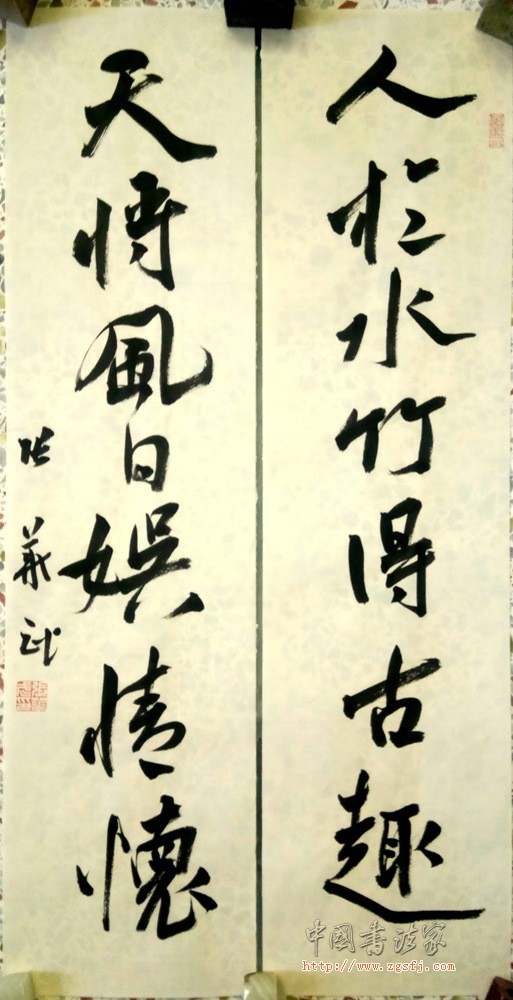 人於水竹得古趣
天将風日娛情懷
中国书法家
http://www.zgsfj.com